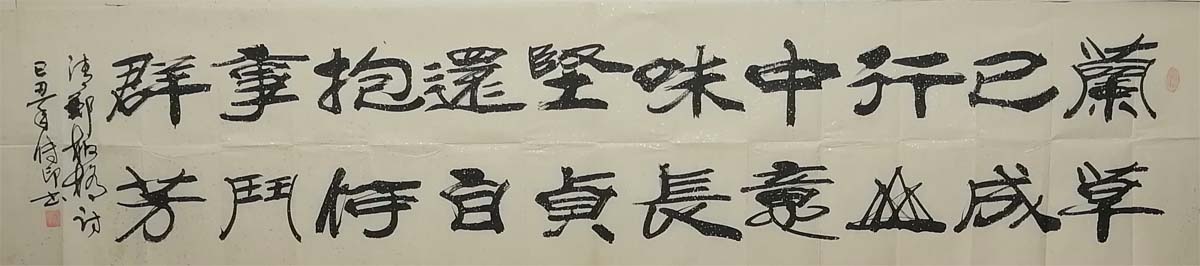 蘭草
已成
行山
中意
味長
堅貞
還自
抱何
事鬥
群芳
清鄭板橋詩
己丑年書